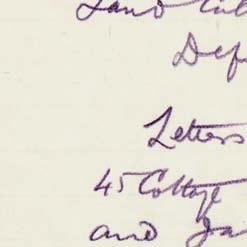 Land
Dep
Letters
45 Cottage
and Ja